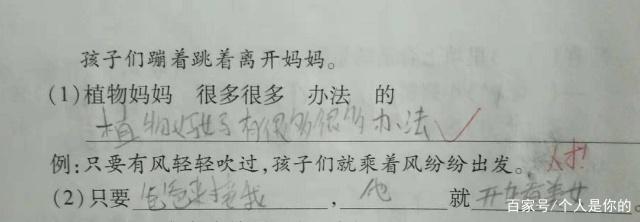 孩子们蹦着跳着离开妈妈。
(1)植物妈妈 很多很多 办法 的
植物妈妈有很多很多办法
例:只要有风轻轻吹过,孩子们就乘着风纷纷出发。 人才!
(2)只要爸爸来接我,他就开车着美女。
百家号/个人是你的